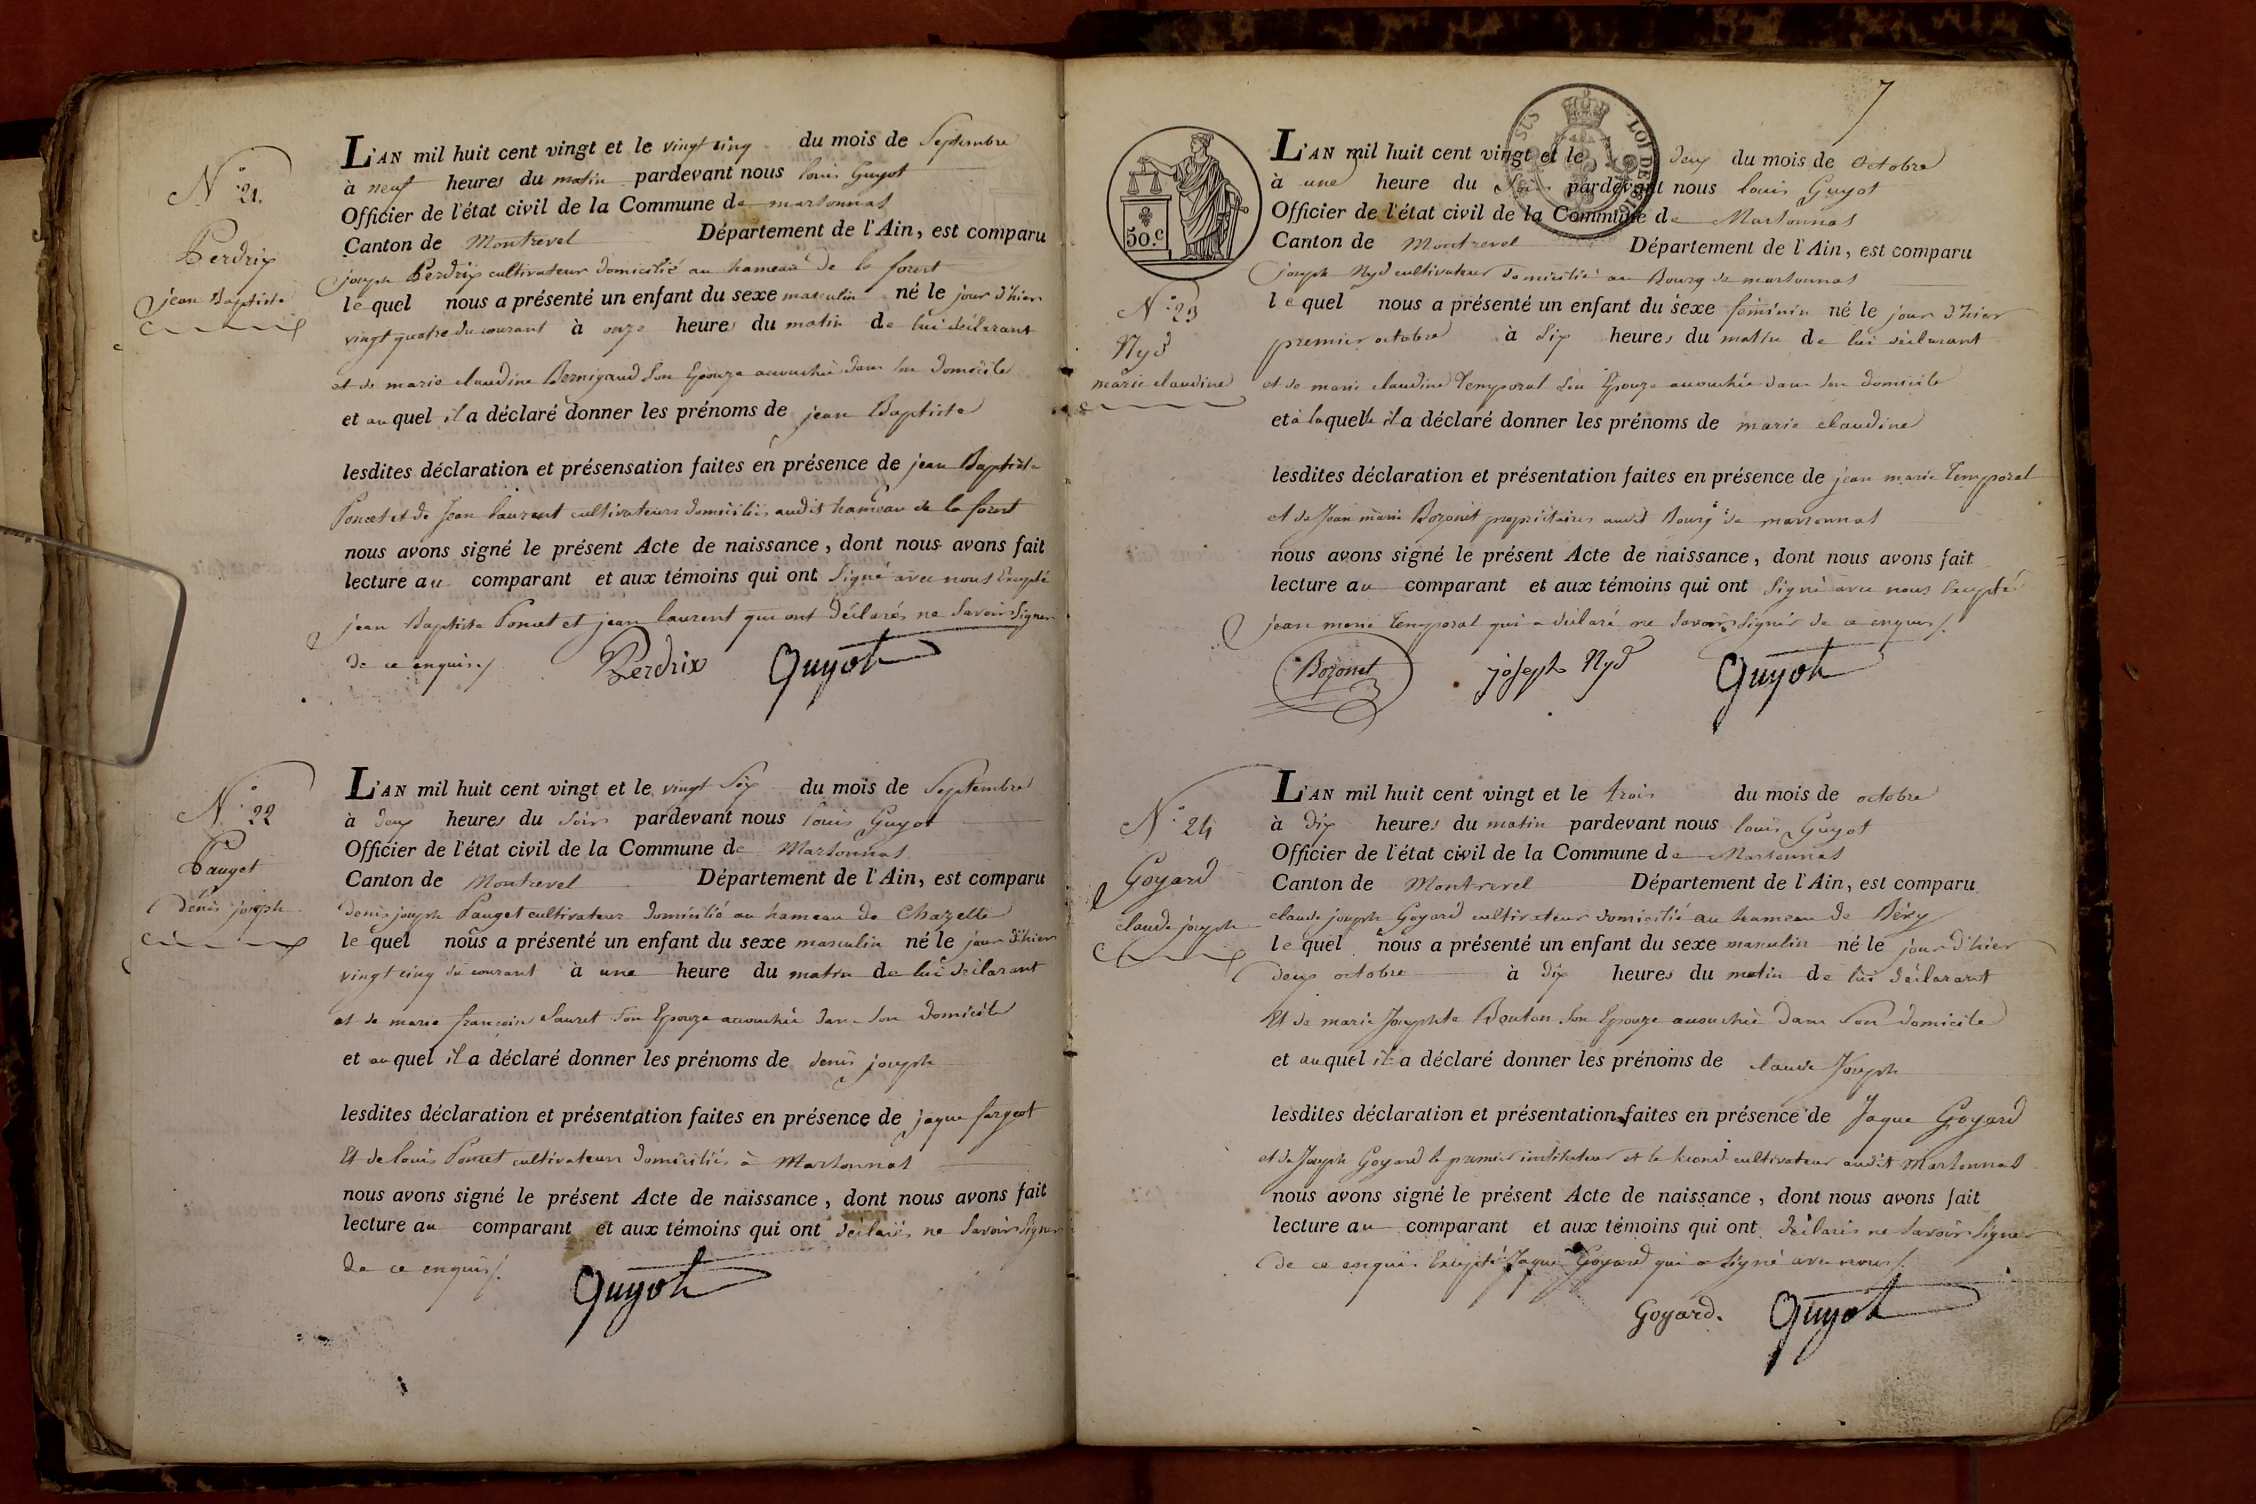 N.° 21.
Perdrix
jean Baptiste
L'AN mil huit cent vingt et le vingt cinq du mois de Septembre
à neuf heures du matin pardevant nous louis Guyot
Officier de l'état civil de la Commune de marsonnas
Canton de Montrevel Département de l'Ain, est comparu
joseph Perdrix cultivateur domicilié au hameau de la forest
le quel nous a présenté un enfant du sexe masculin né le jour d'hier
vingt quatre du courant à onze heures du matin de lui déclarant
et de marie claudine Bernigaud son Epouze accouchée dans son domicile
et au quel il a déclaré donner les prénoms de jean Baptiste
lesdites déclaration et présensation faites en présence de jean Baptiste
Poncet et de Jean laurent cultivateurs domiciliés audit hameau de la forest
nous avons signé le présent Acte de naissance, dont nous avons fait
lecture au comparant et aux témoins qui ont Signé avec nous Excepté
jean Baptiste Poncet et jean laurent qui ont déclarés ne Savoir Signer
de ce enquis /.
Perdrix Guyot
N.° 22
Pauget
denis joseph
L'AN mil huit cent vingt et le vingt Six du mois de Septembre
à deux heures du Soir pardevant nous louis Guyot
Officier de l'état civil de la Commune de Marsonnas
Canton de Montrevel Département de l'Ain, est comparu
denis joseph Pauget cultivateur domicilié au hameau de Chazelle
le quel nous a présenté un enfant du sexe masculin né le jour d'hier
vingt cinq du courant à une heure du matin de lui déclarant
et de marie françoise Sauret Son Epouze accouchée dans Son domicile
et au quel il a déclaré donner les prénoms de denis joseph
lesdites déclaration et présentation faites en présence de jaque fargeot
Et de louis Poncet cultivateurs domiciliés à Marsonnas
nous avons signé le présent Acte de naissance, dont nous avons fait
lecture au comparant et aux témoins qui ont déclarés ne Savoir Signer
de ce enquis /.
Guyot
7
LOI DE 1816
50.c
N.° 23
Nyd
marie claudine
L'AN mil huit cent vingt et le deux du mois de Octobre
à une heure du Soir pardevant nous louis Guyot
Officier de l'état civil de la Commune de Marsonnas
Canton de Montrevel Département de l'Ain, est comparu
joseph Nyd cultivateur domicilié au Bourg de marsonnas
le quel nous a présenté un enfant du sexe féminin né le jour d'hier
premier octobre à Six heures du matin de lui déclarant
et de marie claudine Temporal Son Epouze accouchée dans Son domicile
et à laquelle il a déclaré donner les prénoms de marie claudine
lesdites déclaration et présentation faites en présence de jean marie Temporal
et de Jean marie Bozonet propriétaires audit Bourg de marsonnas
nous avons signé le présent Acte de naissance, dont nous avons fait
lecture au comparant et aux témoins qui ont Signé avec nous Excepté
jean marie Temporal qui a déclaré ne Savoir Signer de ce enquis /.
Bozonet joseph Nyd Guyot
N.° 24
Goyard
claude joseph
L'AN mil huit cent vingt et le trois du mois de octobre
à dix heures du matin pardevant nous louis Guyot
Officier de l'état civil de la Commune de Marsonnas
Canton de Montrevel Département de l'Ain, est comparu
claude joseph Goyard cultivateur domicilié au hameau de Béry
le quel nous a présenté un enfant du sexe masculin né le jour d'hier
deux octobre à dix heures du matin de lui déclarant
Et de marie Josephte Bouton Son Epouze accouchée dans Son domicile
et au quel il a déclaré donner les prénoms de claude Joseph
lesdites déclaration et présentation faites en présence de Jaque Goyard
et de Joseph Goyard le premier instituteur et le Second cultivateur audit Marsonnas
nous avons signé le présent Acte de naissance, dont nous avons fait
lecture au comparant et aux témoins qui ont déclarés ne Savoir Signer
de ce enquis Excepté Jaque Goyard qui a Signé avec nous /.
Goyard. Guyot